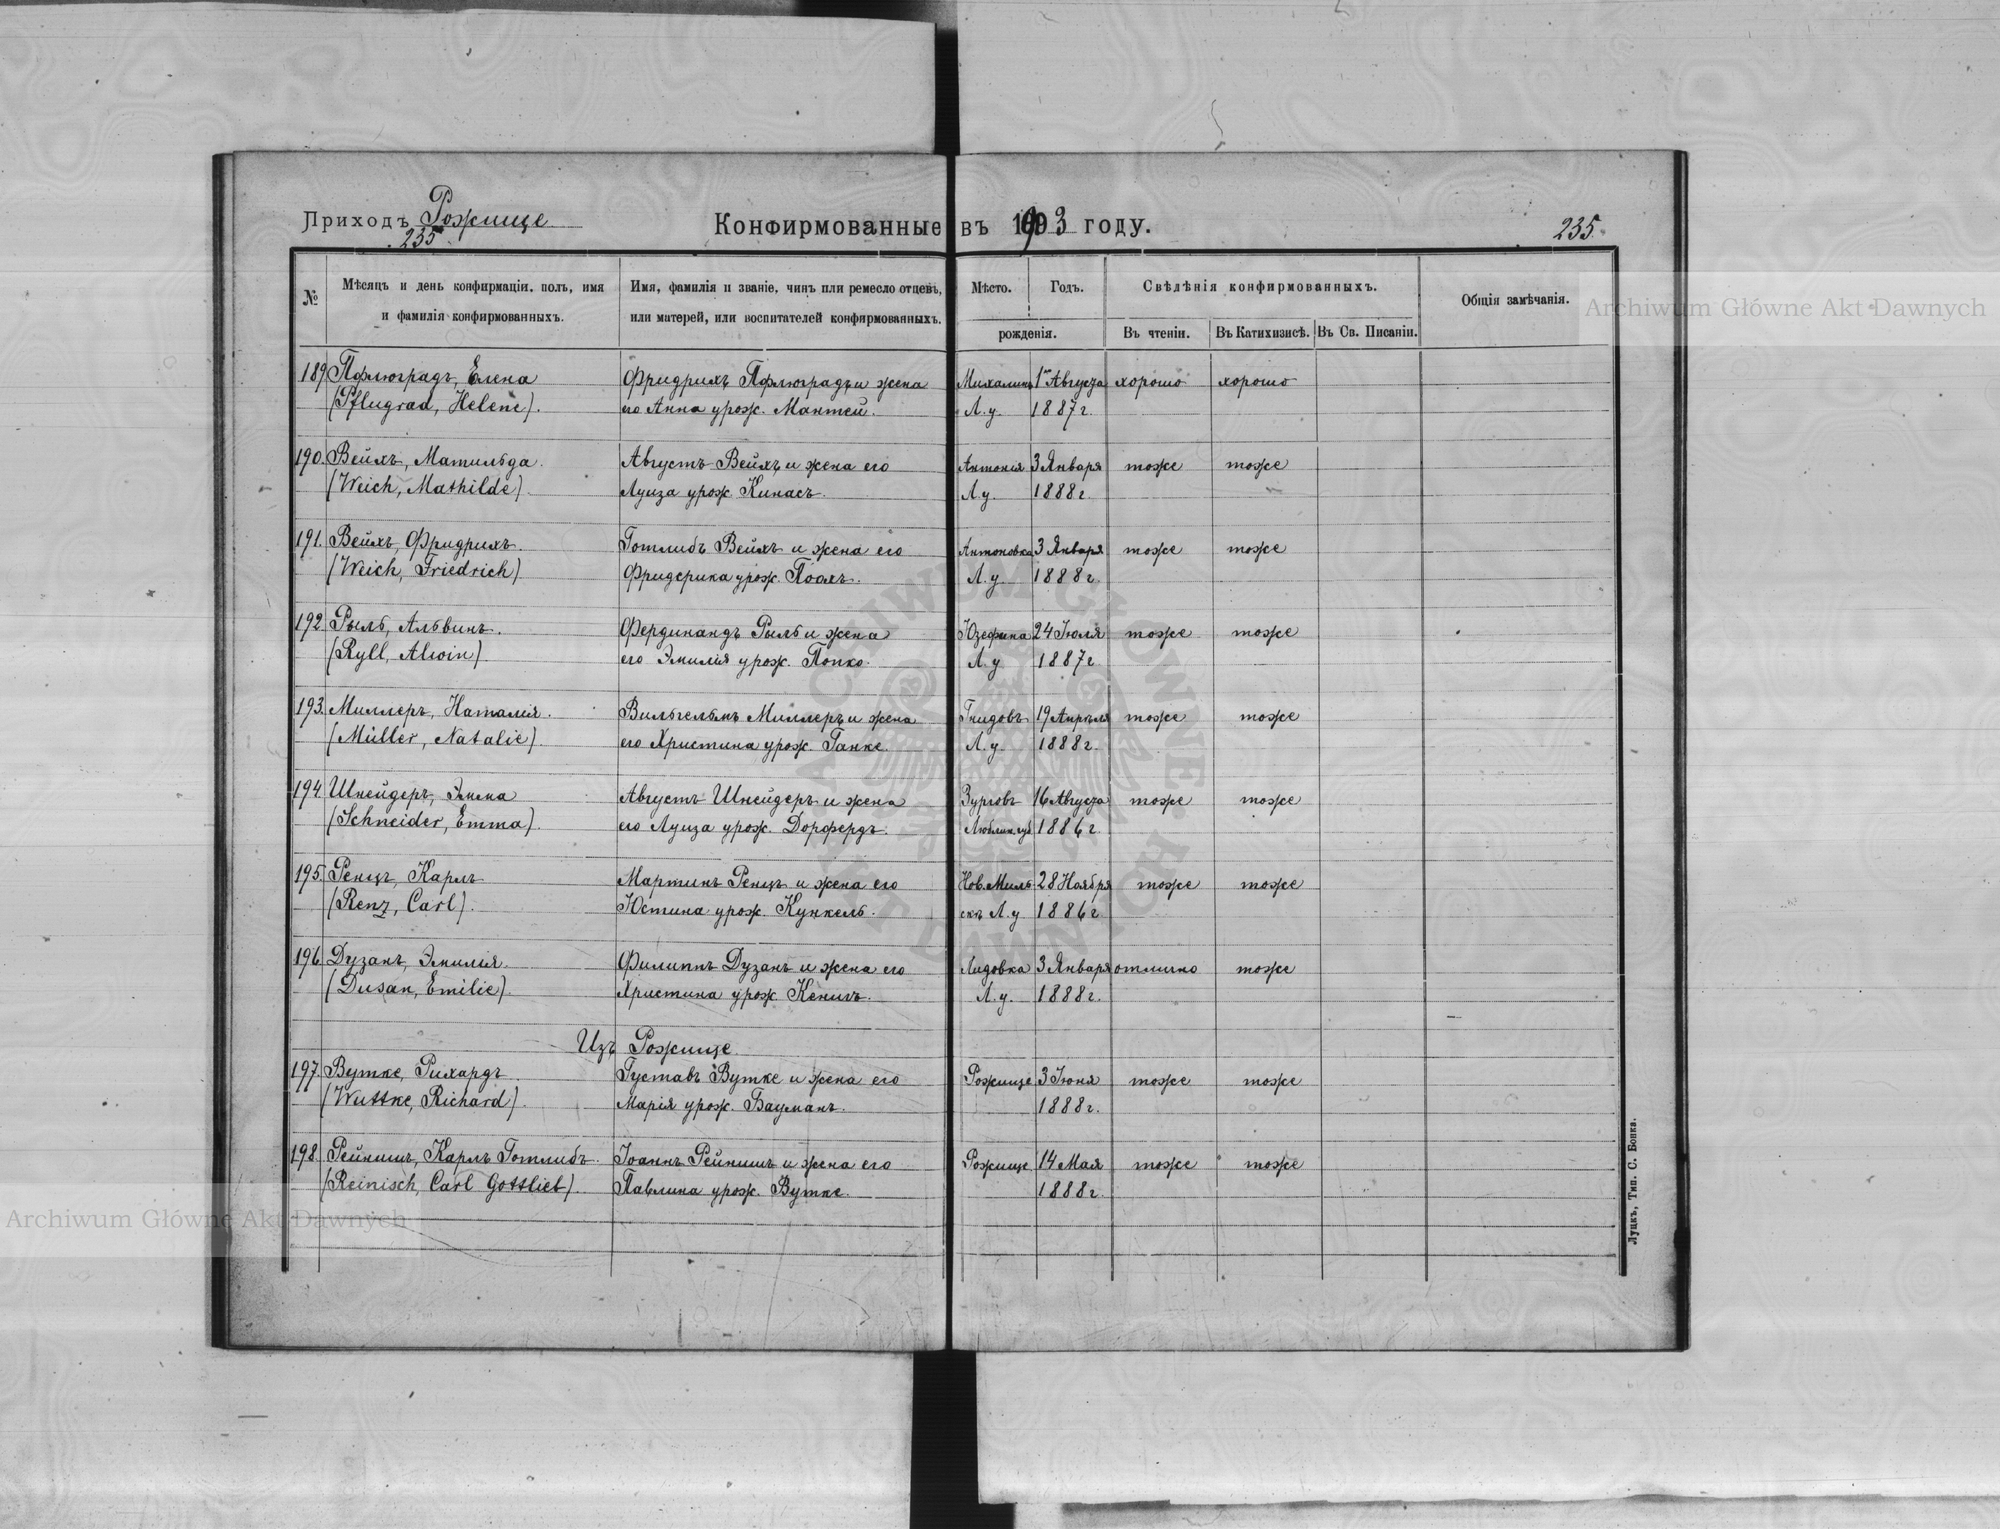 Приходъ Рожище
235
Конфирмованные въ 1903 году.
235.
№
Мѣсяцъ и день конфирмаціи, полъ, имя и фамилія конфирмованныхъ.
Имя, фамилія и званіе, чинъ или ремесло отцевъ, или матерей, или воспитателей конфирмованныхъ.
Мѣсто.
Годъ.
рожденія.
Свѣдѣнія конфирмованныхъ.
Въ чтеніи.
Въ Катихизисѣ.
Въ Св. Писаніи.
Общія замѣчанія.
189. Пфлюградъ, Елена Фридрихъ Пфлюградъ и жена Михалинъ 1го Августа хорошо хорошо
(Pflugrad, Helene). его Анна урож. Мантей. Л. у. 1887 г.
190. Вейхъ, Матильда. Августъ Вейхъ и жена его Антонія 3 Января тоже тоже
(Weich, Mathilde) Луиза урож. Кинасъ. Л. у. 1888 г.
191. Вейхъ, Фридрихъ. Готлибъ Вейхъ и жена его Антоновка 3 Января тоже тоже
(Weich, Friedrich) Фридерика урож. Поахъ. Л. у. 1888 г.
192. Рыль, Альвинъ. Фердинандъ Рыль и жена Юзефина 24 Іюля тоже тоже
(Ryll, Alwin) его Эмилія урож. Попко. Л. у. 1887 г.
193. Миллеръ, Наталія. Вильгельмъ Миллеръ и жена Гнидовъ 19 Апрѣля тоже тоже
(Müller, Natalie) его Христина урож. Ганке. Л. у. 1888 г.
194. Шнейдеръ, Эмма Августъ Шнейдеръ и жена Зурговъ 16 Августа тоже тоже
(Schneider, Emma). его Луиза урож. Дорфердъ. Люблин. губ. 1886 г.
195. Ренцъ, Карлъ Мартинъ Ренцъ и жена его Нов. Миль 28 Ноября тоже тоже
(Renz, Carl). Юстина урож. Кункель. скъ Л. у. 1886 г.
196. Дузанъ, Эмилія. Филиппъ Дузанъ и жена его Лидовка 3 Января отлично тоже
(Dusan, Emilie). Христина урож. Кенигъ. Л. у. 1888 г.
Изъ Рожище.
197. Вутке, Рихардъ. Густавъ Вутке и жена его Рожище 3 Іюня тоже тоже
(Wuttke, Richard). Марія урож. Бауманъ. 1888 г.
198. Рейнишъ, Карлъ Готлибъ. Іоаннъ Рейнишъ и жена его Рожище 14 Мая тоже тоже
(Reinisch, Carl Gottlieb). Павлина урож. Вутке. 1888 г.
Луцкъ, Тип. С. Бонка.
Archiwum Główne Akt Dawnych
Archiwum Główne Akt Dawnych
ARCHIWUM GŁÓWNE AKT DAWNYCH